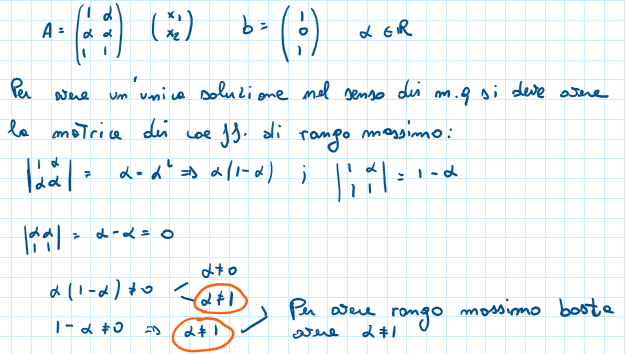 A = (1 α / α α / 1 1) (x₁ / x₂) b = (1 / 0 / 1) α ∈ ℝ
Per avere un'unica soluzione nel senso dei m.q si deve avere
la matrice dei coeff. di rango massimo:
|1 α / α α| = α - α² ⇒ α(1-α) ; |1 α / 1 1| = 1 - α
|α α / 1 1| = α - α = 0
α(1-α) ≠ 0 α ≠ 0
α ≠ 1
1 - α ≠ 0 ⇒ α ≠ 1 Per avere rango massimo basta
avere α ≠ 1